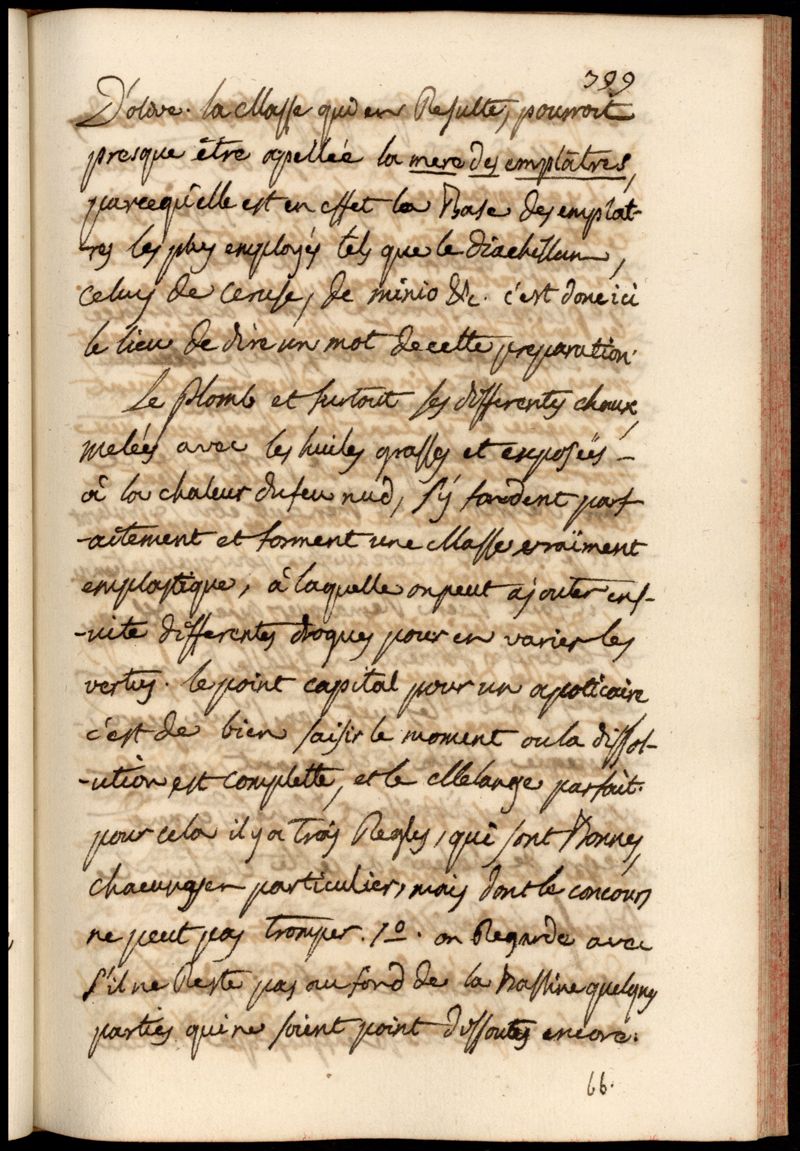 399
D'olive. la Masse qui en Resulte, pourroit
presque être apellée la mere des emplâtres,
parcequ'elle est en effet la Base des emplat-
-res les plus employés tels que le diachillum,
celuy de ceruse, de minio &c. c'est donc ici
le lieu de dire un mot de cette preparation.
Le Plomb et surtout ses differentes chaux,
melées avec les huiles grasses et exposées -
à la chaleur du feu nud, s'y fondent parf-
-aitement et forment une Masse vraïment
emplastique, à laquelle on peut ajouter ens-
-uite differentes drogues pour en varier les
vertus. le point capital pour un apoticaire
c'est de bien saisir le moment ou la dissol-
-ution est complette, et le Melange parfait.
pour cela il y a trois Regles, qui sont Bonnes,
chacunes en particulier, mais dont le concours
ne peut pas tromper. 1º. on Regarde avec
s'il ne Reste pas au fond de la Bassine quelques
parties qui ne soient point dissoutes encore.
66.